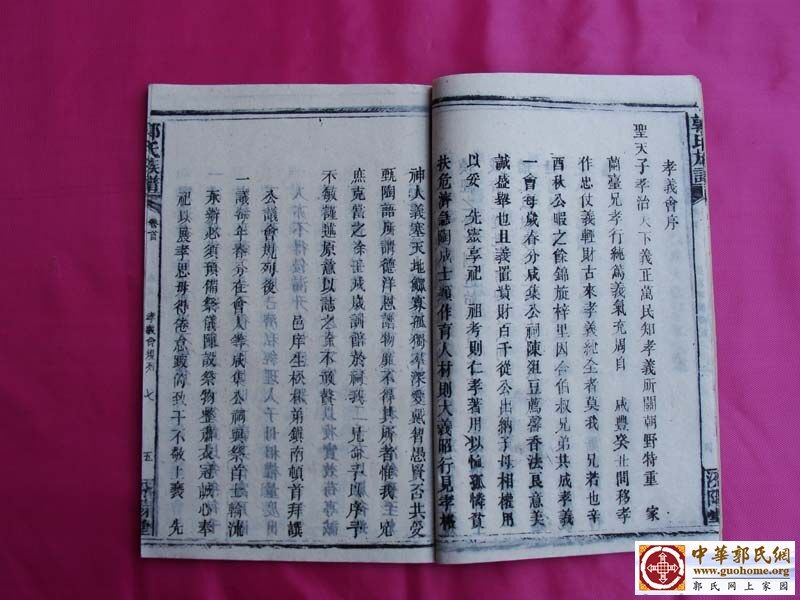 孝義會序
聖天子孝治天下義正萬民知孝義所關朝野特重 家
蘭臺兄孝行純篤義氣充周自 咸豐癸丑間移孝
作忠仗義輕財古來孝義純全者莫我 兄若也辛
酉秋公暇之餘錦旋梓里因合伯叔兄弟共成孝義
一會每歲春分咸集公祠陳俎豆薦馨香法良意美
誠盛舉也且義置貲財百千從公出納子母相權用
以妥 先靈享祀 祖考則仁孝著用以恤孤憐貧
扶危濟急陶成士類作育人材則大義昭行見孝格
神人義塞天地鰥寡孤獨羣深愛戴智愚賢否共受
甄陶語
德洋恩
物
不得其所者惟我 兄
庶克當之
於祠我 二兄命予以序予
不敏謹述原意以誌之並不敢贅
邑庠生
弟鎮南頓首拜撰
公議會規列後
一議每年春分在會人等咸集公祠與祭首士輪流
承辦必須預備祭儀陳設祭物整肅衣冠誠心奉
祀以展孝思毋得倦怠
致干不敬上褻 先
郭氏族譜
卷首
孝義會規列
七
五
汾陽堂
郭氏族譜
汾陽堂
中華郭氏網
www.guohome.org
郭氏網上家園